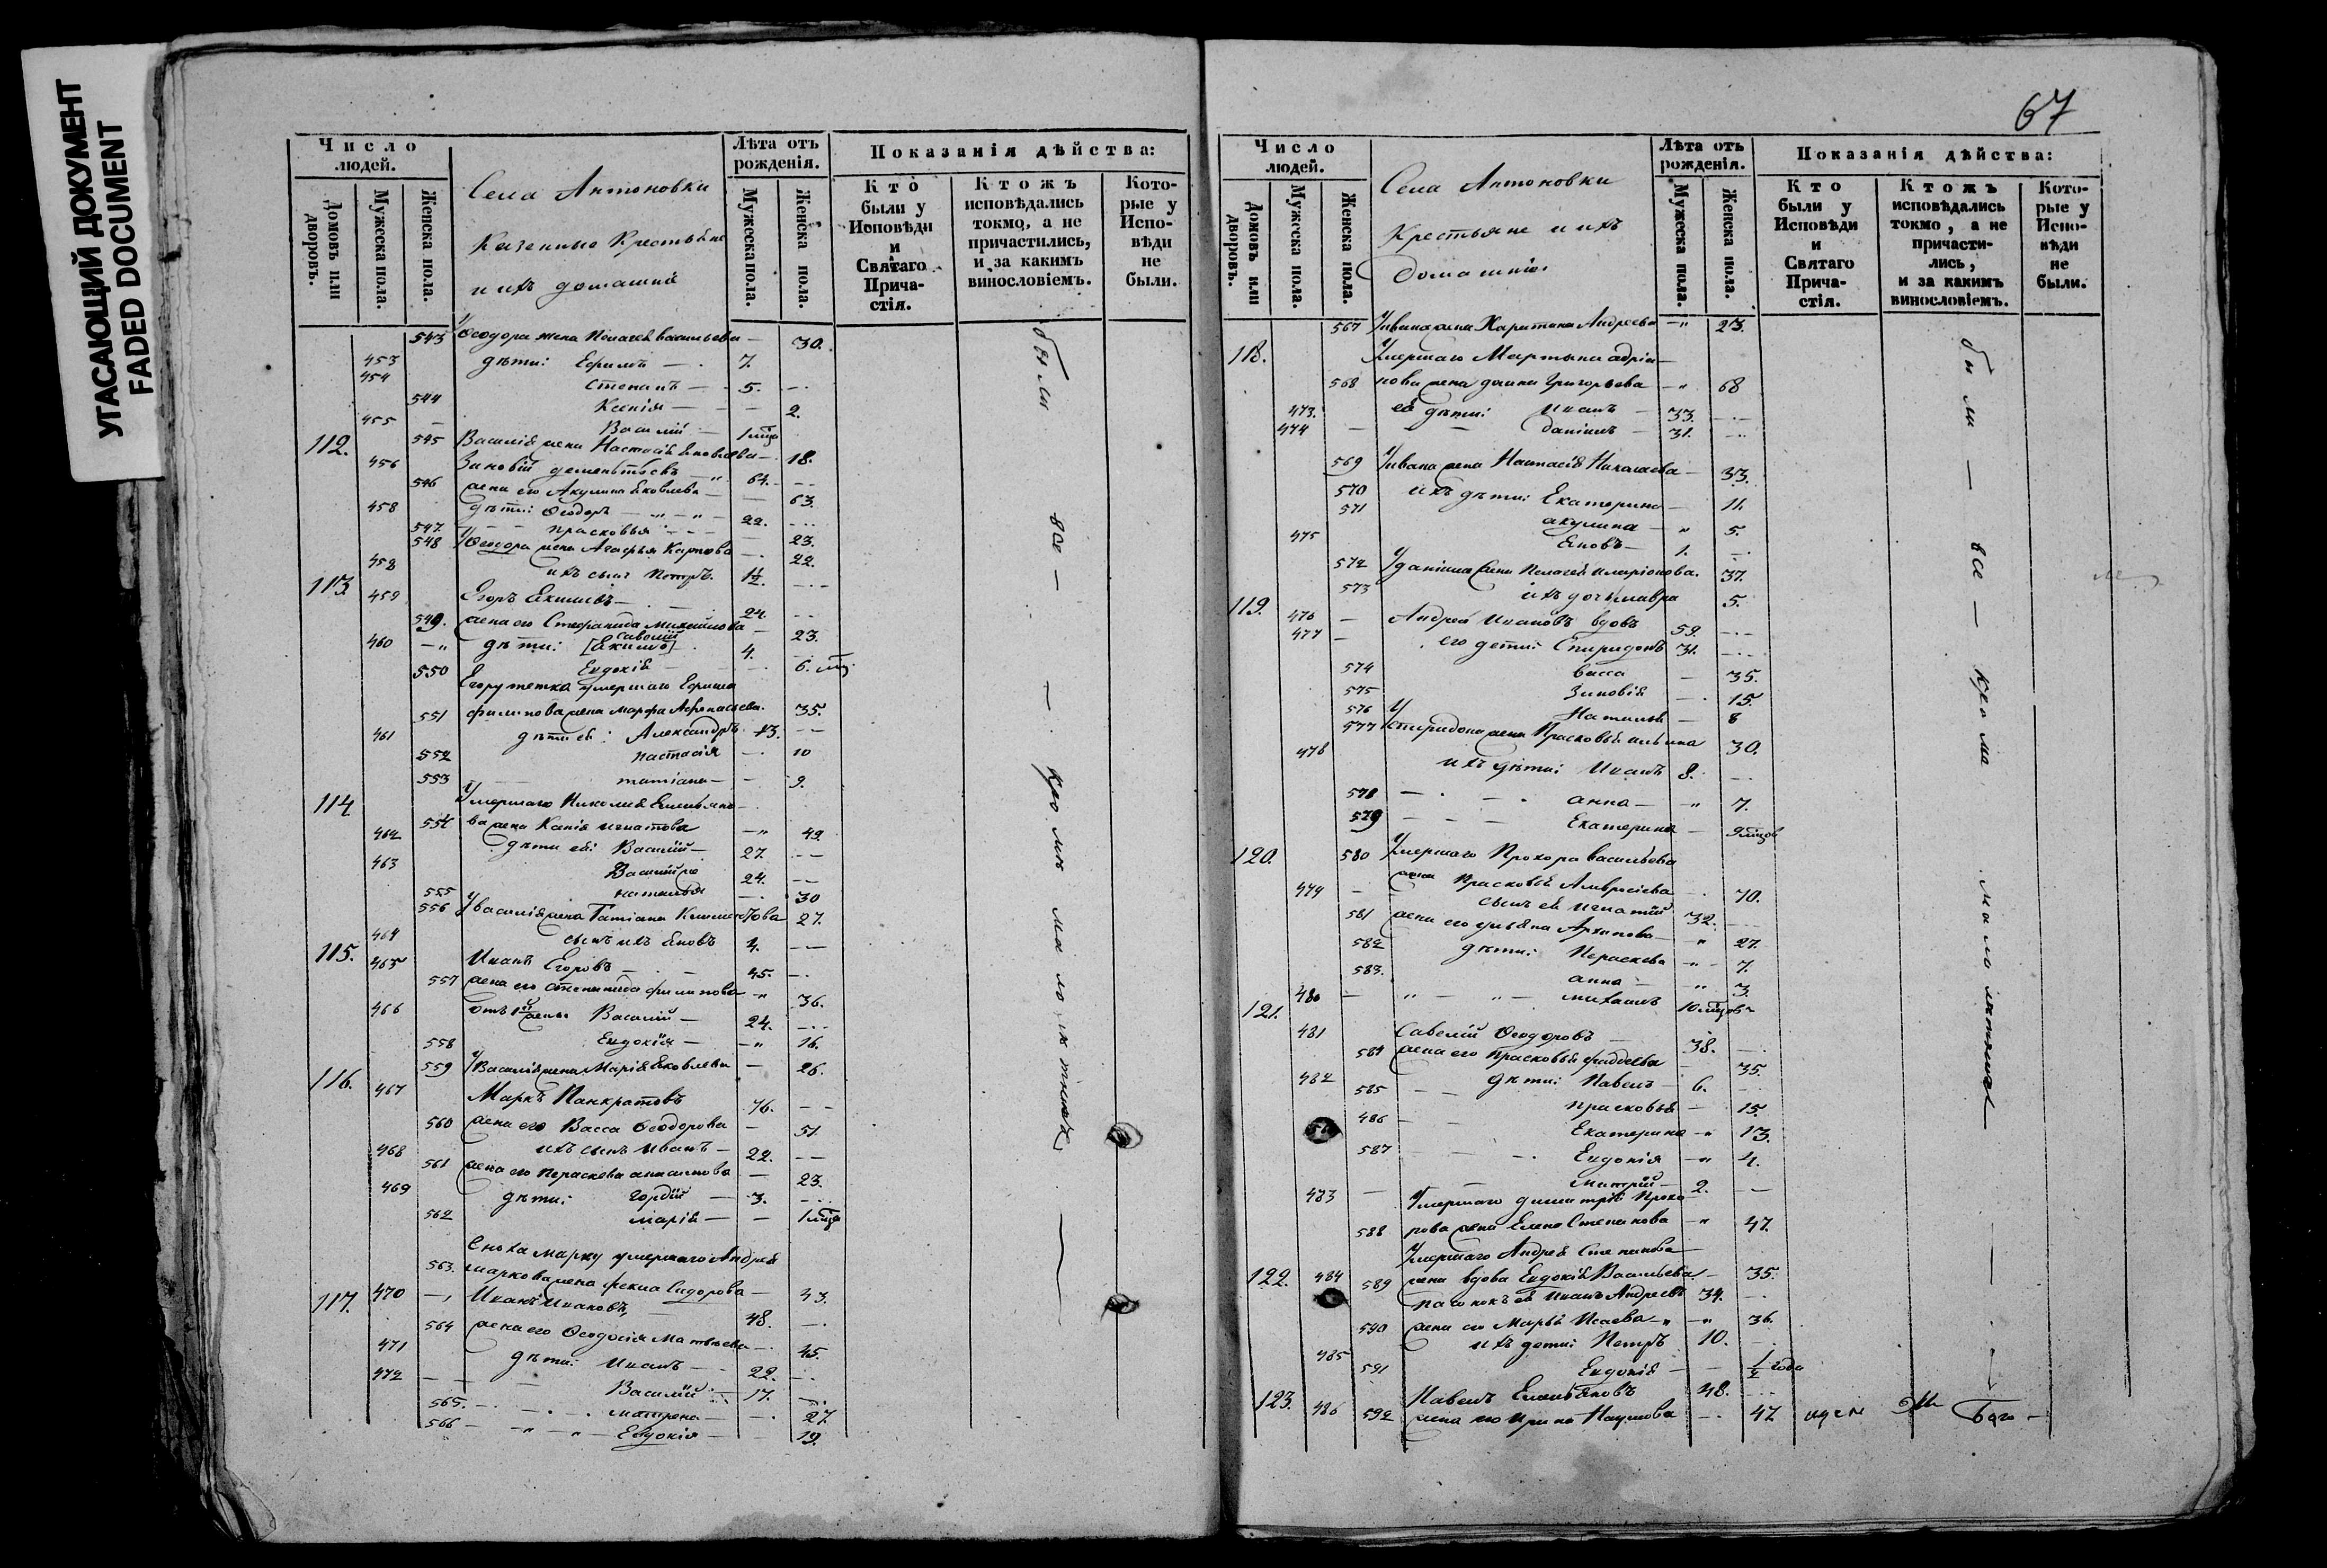 УГАСАЮЩИЙ ДОКУМЕНТ
FADED DOCUMENT
Число людей.
Домовъ или дворовъ.
Мужеска пола.
Женска пола.
Села Антоновки
Казенные Крестьяне
и ихъ домашніе
Лѣта отъ рожденія.
Мужеска пола.
Женска пола.
Показанія дѣйства:
Кто были у Исповѣди и Святаго Причастія.
Ктожъ исповѣдались токмо, а не причастились, и за какимъ винословіемъ.
Которые у Исповѣди не были.
543 Ѳеодора жена Пелагея Васильева — 30.
453 дѣти: Ефимъ — 7.
454 Степанъ — 5.
544 Ксенія — 2.
455 Василій — 1 мца
545 Василія жена Настасія Яковлева — 18.
112. 456 Зиновій Дементьевъ 64.
546 жена его Акулина Яковлева — 63.
458 дѣти: Ѳеодоръ — 22.
547. Прасковья — 23.
548 У Ѳеодора жена Агафья Карпова 22.
458 ихъ сынъ Петръ. 1½.
113. 459 Егоръ Екимовъ — 24.
549. жена его Степанида Михайлова — 23.
460 дѣти: [Екимъ] Савелій 4.
550 Евдокія — 6. мц.
Егору тетка умершаго Ефима
551 Филипова жена Марфа Афанасьева. 35.
461 дѣти ей: Александръ. 13.
552 Настасія — 10
553 Татіана — 9.
114 Умершаго Николая Емельяно-
554 ва жена Ксенія Игнатова 49.
462 дѣти ей: Василій — 27.
463 Василій 24.
555 Наталья 30
556 У Василія жена Татіана Климентова 27.
464 сынъ ихъ Яковъ 4.
115. 465 Иванъ Егоровъ — 45.
557 жена его Степанида Филипова 36.
466 отъ 1й жены Василій — 24.
558 Евдокія — 16.
559 У Василія жена Марія Яковлева — 26.
116. 467 Маркъ Панкратовъ 76.
560 жена его Васса Ѳеодорова 51
468 ихъ сынъ Иванъ — 22.
561 жена его Параскева 23.
469 дѣти: Гордій — 3.
562 Марія — 1 мца
Сноха Марку умершаго Андрея
563. Маркова жена Фекла Сидорова — 43.
117. 470 Иванъ Ивановъ 48.
564 жена его Ѳеодосія Матвѣева — 45.
471 дѣти: Иванъ — 22.
472 Василій — 17.
565. Матрена — 27.
566 Евдокія — 19.
были — все — кромѣ малолѣтнихъ
67
Число людей.
Домовъ или дворовъ.
Мужеска пола.
Женска пола.
Села Антоновки
Крестьяне и ихъ
домашніе
Лѣта отъ рожденія.
Мужеска пола.
Женска пола.
Показанія дѣйства:
Кто были у Исповѣди и Святаго Причастія.
Ктожъ исповѣдались токмо, а не причастились, и за какимъ винословіемъ.
Которые у Исповѣди не были.
567 У Ивана жена Харитина Андреева 23.
118. Умершаго Мартына Адріа-
568 нова жена Домна Григорьева 68
473. ей дѣти: Иванъ 33.
474 Даніилъ 31.
569 У Ивана жена Настасія Николаева 33.
570 ихъ дѣти: Екатерина 11.
571 Акулина 5.
475 Яковъ — 1.
572 У Даніила жена Пелагея Иларіонова. 37.
573 ихъ дочь Мавра 5.
119. 476 Андрей Ивановъ вдовъ 59.
477 его дети: Спиридонъ 31.
574 Васса 35.
575 Зиновія 15.
576 Наталья 8
577 У Спиридона жена Прасковья Ильина 30.
478 ихъ дѣти: Иванъ 8.
578 Анна — 7.
579 Екатерина 9 мцов
120. 580 Умершаго Прохора Васильева
жена Прасковья Амвросіева 70.
479 сынъ ей Игнатій 32.
581 жена его Ульяна Архипова — 27.
582 дѣти: Параскева 7.
583. Анна — 3.
480 Михаилъ 10 мцовъ
121. 481 Савелій Ѳеодоровъ 38.
584 жена его Прасковья Фаддеева 35.
482 дѣти: Павелъ 6.
585 Прасковья 15.
486 Екатерина 13.
587 Евдокія 4.
483 2.
Умершаго Димитрія Прохо
588 рова жена Елена Степанова 47.
Умершаго Андрея Степанова
122. 484 589 жена вдова Евдокія Васильева 35.
пасынокъ ей Иванъ Андреевъ 34.
590 жена его Марья Исаева 36.
485 ихъ дети: Петръ 10.
591 Евдокія ½ года
123. 486 Павелъ Емельяновъ 48.
592 жена его Ирина Наумова 47
были — все — кромѣ малолѣтнихъ